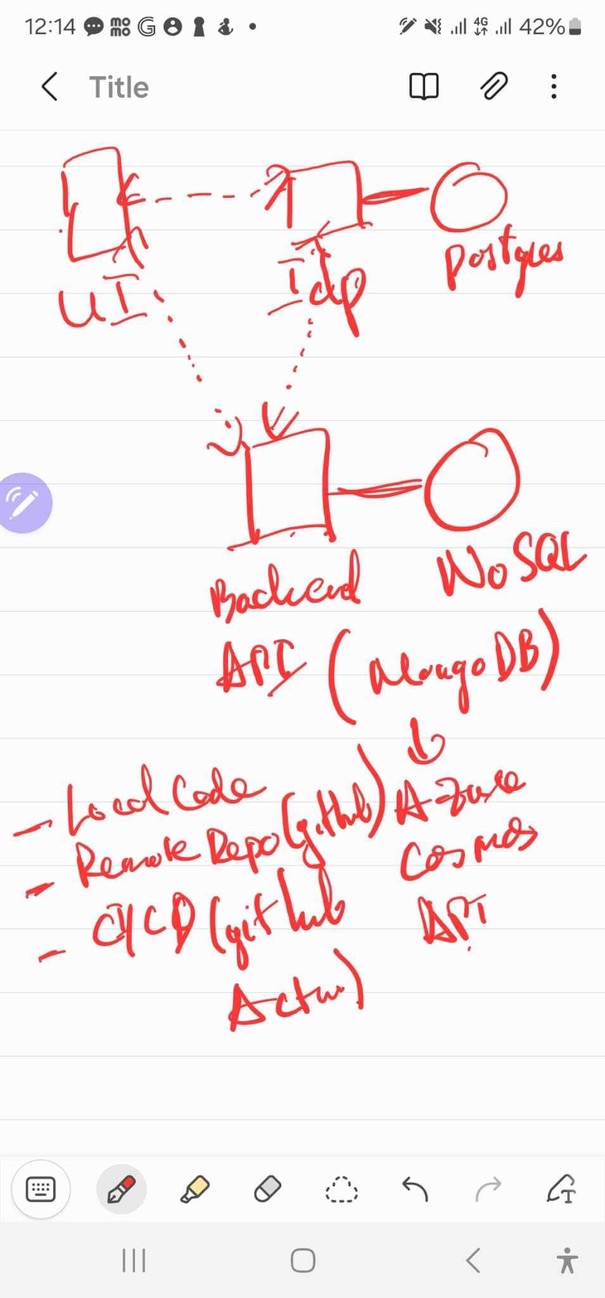 12:14 4G 42%
Title
UI
Idp
Postgres
Backend
API
NoSQL
(MongoDB)
Azure
Cosmos
API
- Local Code
- Remote Repo (github)
- CI/CD (github
Action)